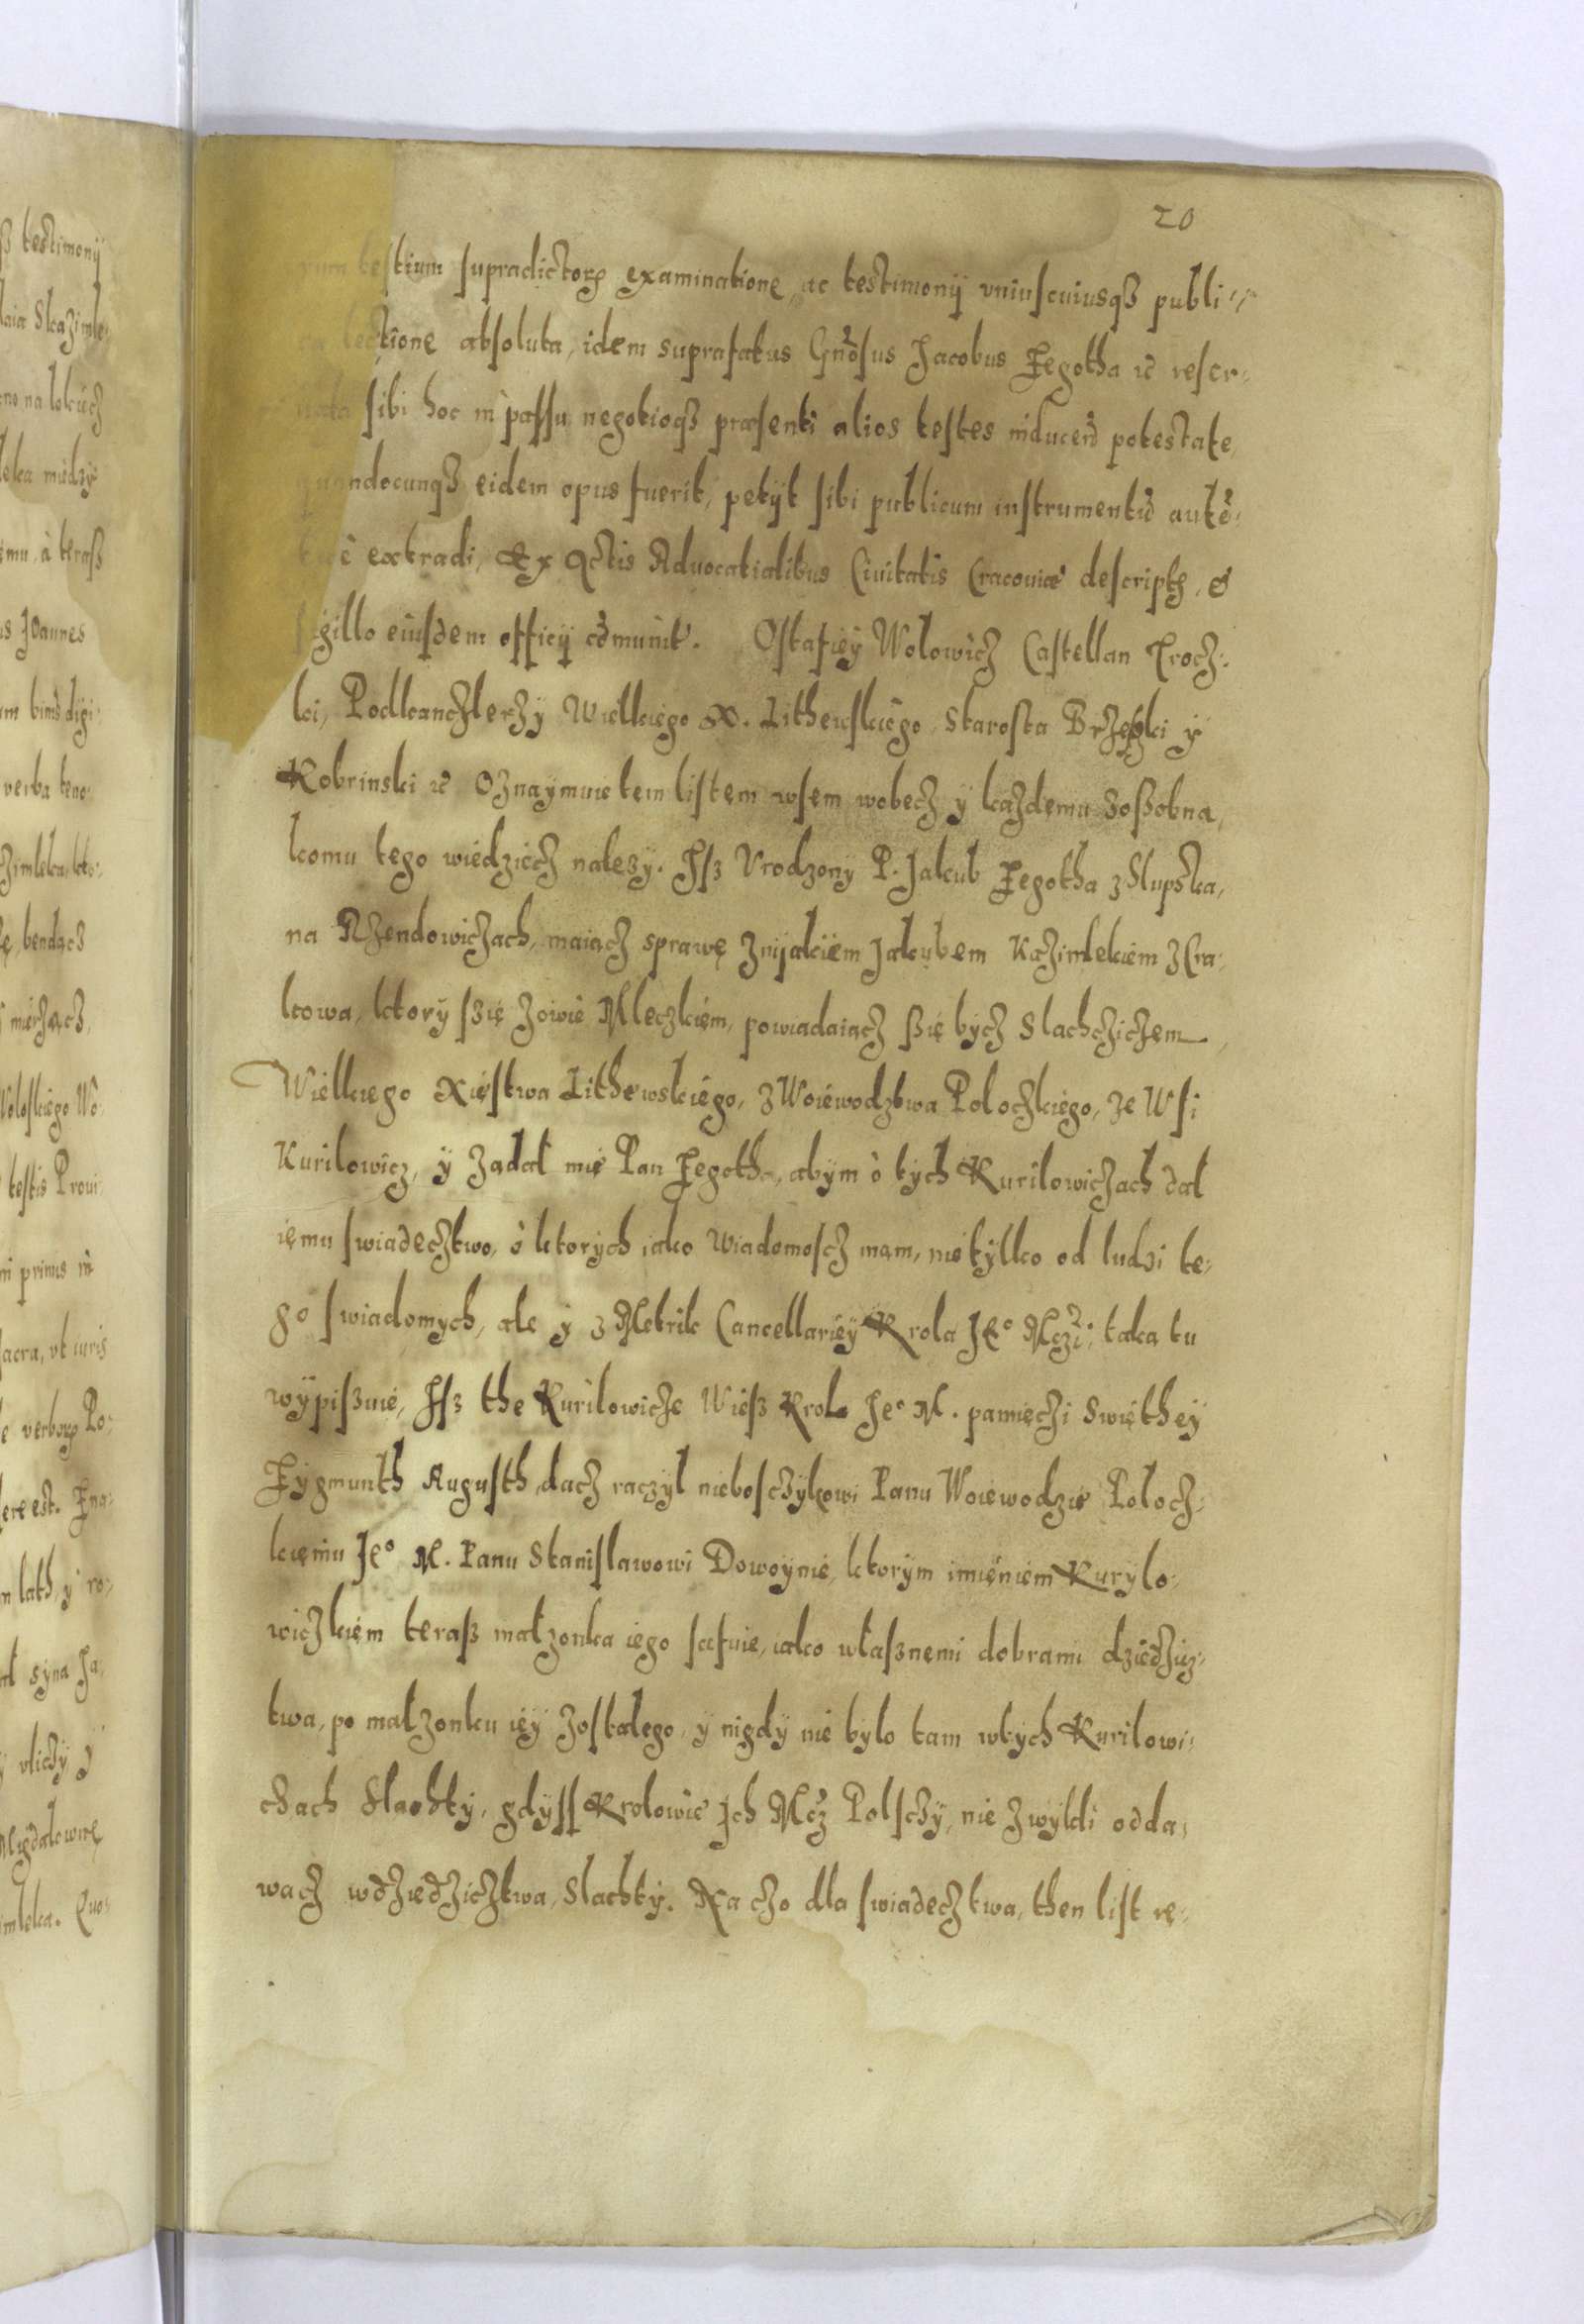 20
rum testium supradictorꝝ examinatione, ac testimonÿ vniuscuiusqꝫ publi-
ca lectione absoluta, idem suprafatus Gnosus Jacobus Fegotha &c reser-
uata sibi hoc in passu negotioqꝫ præsenti alios testes inducend potestate,
quandocunqꝫ eidem opus fuerit, petÿt sibi publicum instrumentũ autẽ-
ticè extradi, Ex Actis Aduocatialibus Ciuitatis Cracouiæ descriptꝝ, &
sigillo eiusdem officÿ cõmunit. Ostafieÿ Wolowicz Castellan Trocz-
ki, Podkanczlerzÿ Wielkiego X. Lithewskiego, Starosta Brzeski ÿ
Kobrinski &c Oznaymuie tem listem wsem wobecz ÿ kazdemu zoßobna,
komu tego wiedziecz nalezÿ. Jsz Vrodzony P. Jakub Fegotha z Slupska,
na Rzendowiczach, maiącz sprawę znijakiem Jakubem Kazimlekiem z Cra-
kowa, ktorÿ szię zowie Mleczkiem, powiadaiącz ßię bÿcz Slachczichem
Wielkiego Xięstwa Lithewskiego, z Woiewodztwa Poloczkiego, ze Wsi
Kurilowicz, ÿ ządał mię Pan Fegotha, abÿm o tÿch Kurilowiczach dał
iemu swiadecztwo, o ktorÿch iako Wiadomoscz mam, nietÿlko od ludzi te-
go swiadomych, ale ÿ z Metrik Cancellarieÿ Krola Je° Mczi: taka tu
wÿpiszuie, Jsz the Kurilowicze Wieß Krol Je° M. pamięczi Swięthey
Zÿgmunth Augusth, dacz raczÿl nieboszczÿkowi Panu Woiewodzie Polocz-
kiemu Je° M. Panu Stanislawowi Dowoÿnie, ktorÿm imięniem Kurÿlo-
wiczkiem teraß małzonka iego szafuie, iako własznemi dobrami dziedzicz-
twa, po małzonku ieÿ zostałego, ÿ nigdÿ nie bÿlo tam wtÿch Kurilowi-
czach Slachtÿ, gdÿss Krolowie Jch Mcz Polsczÿ, nie zwÿkli odda-
wacz wdziedzicztwa, Slachtÿ. Na czo dla swiadecztwa, then list rę-